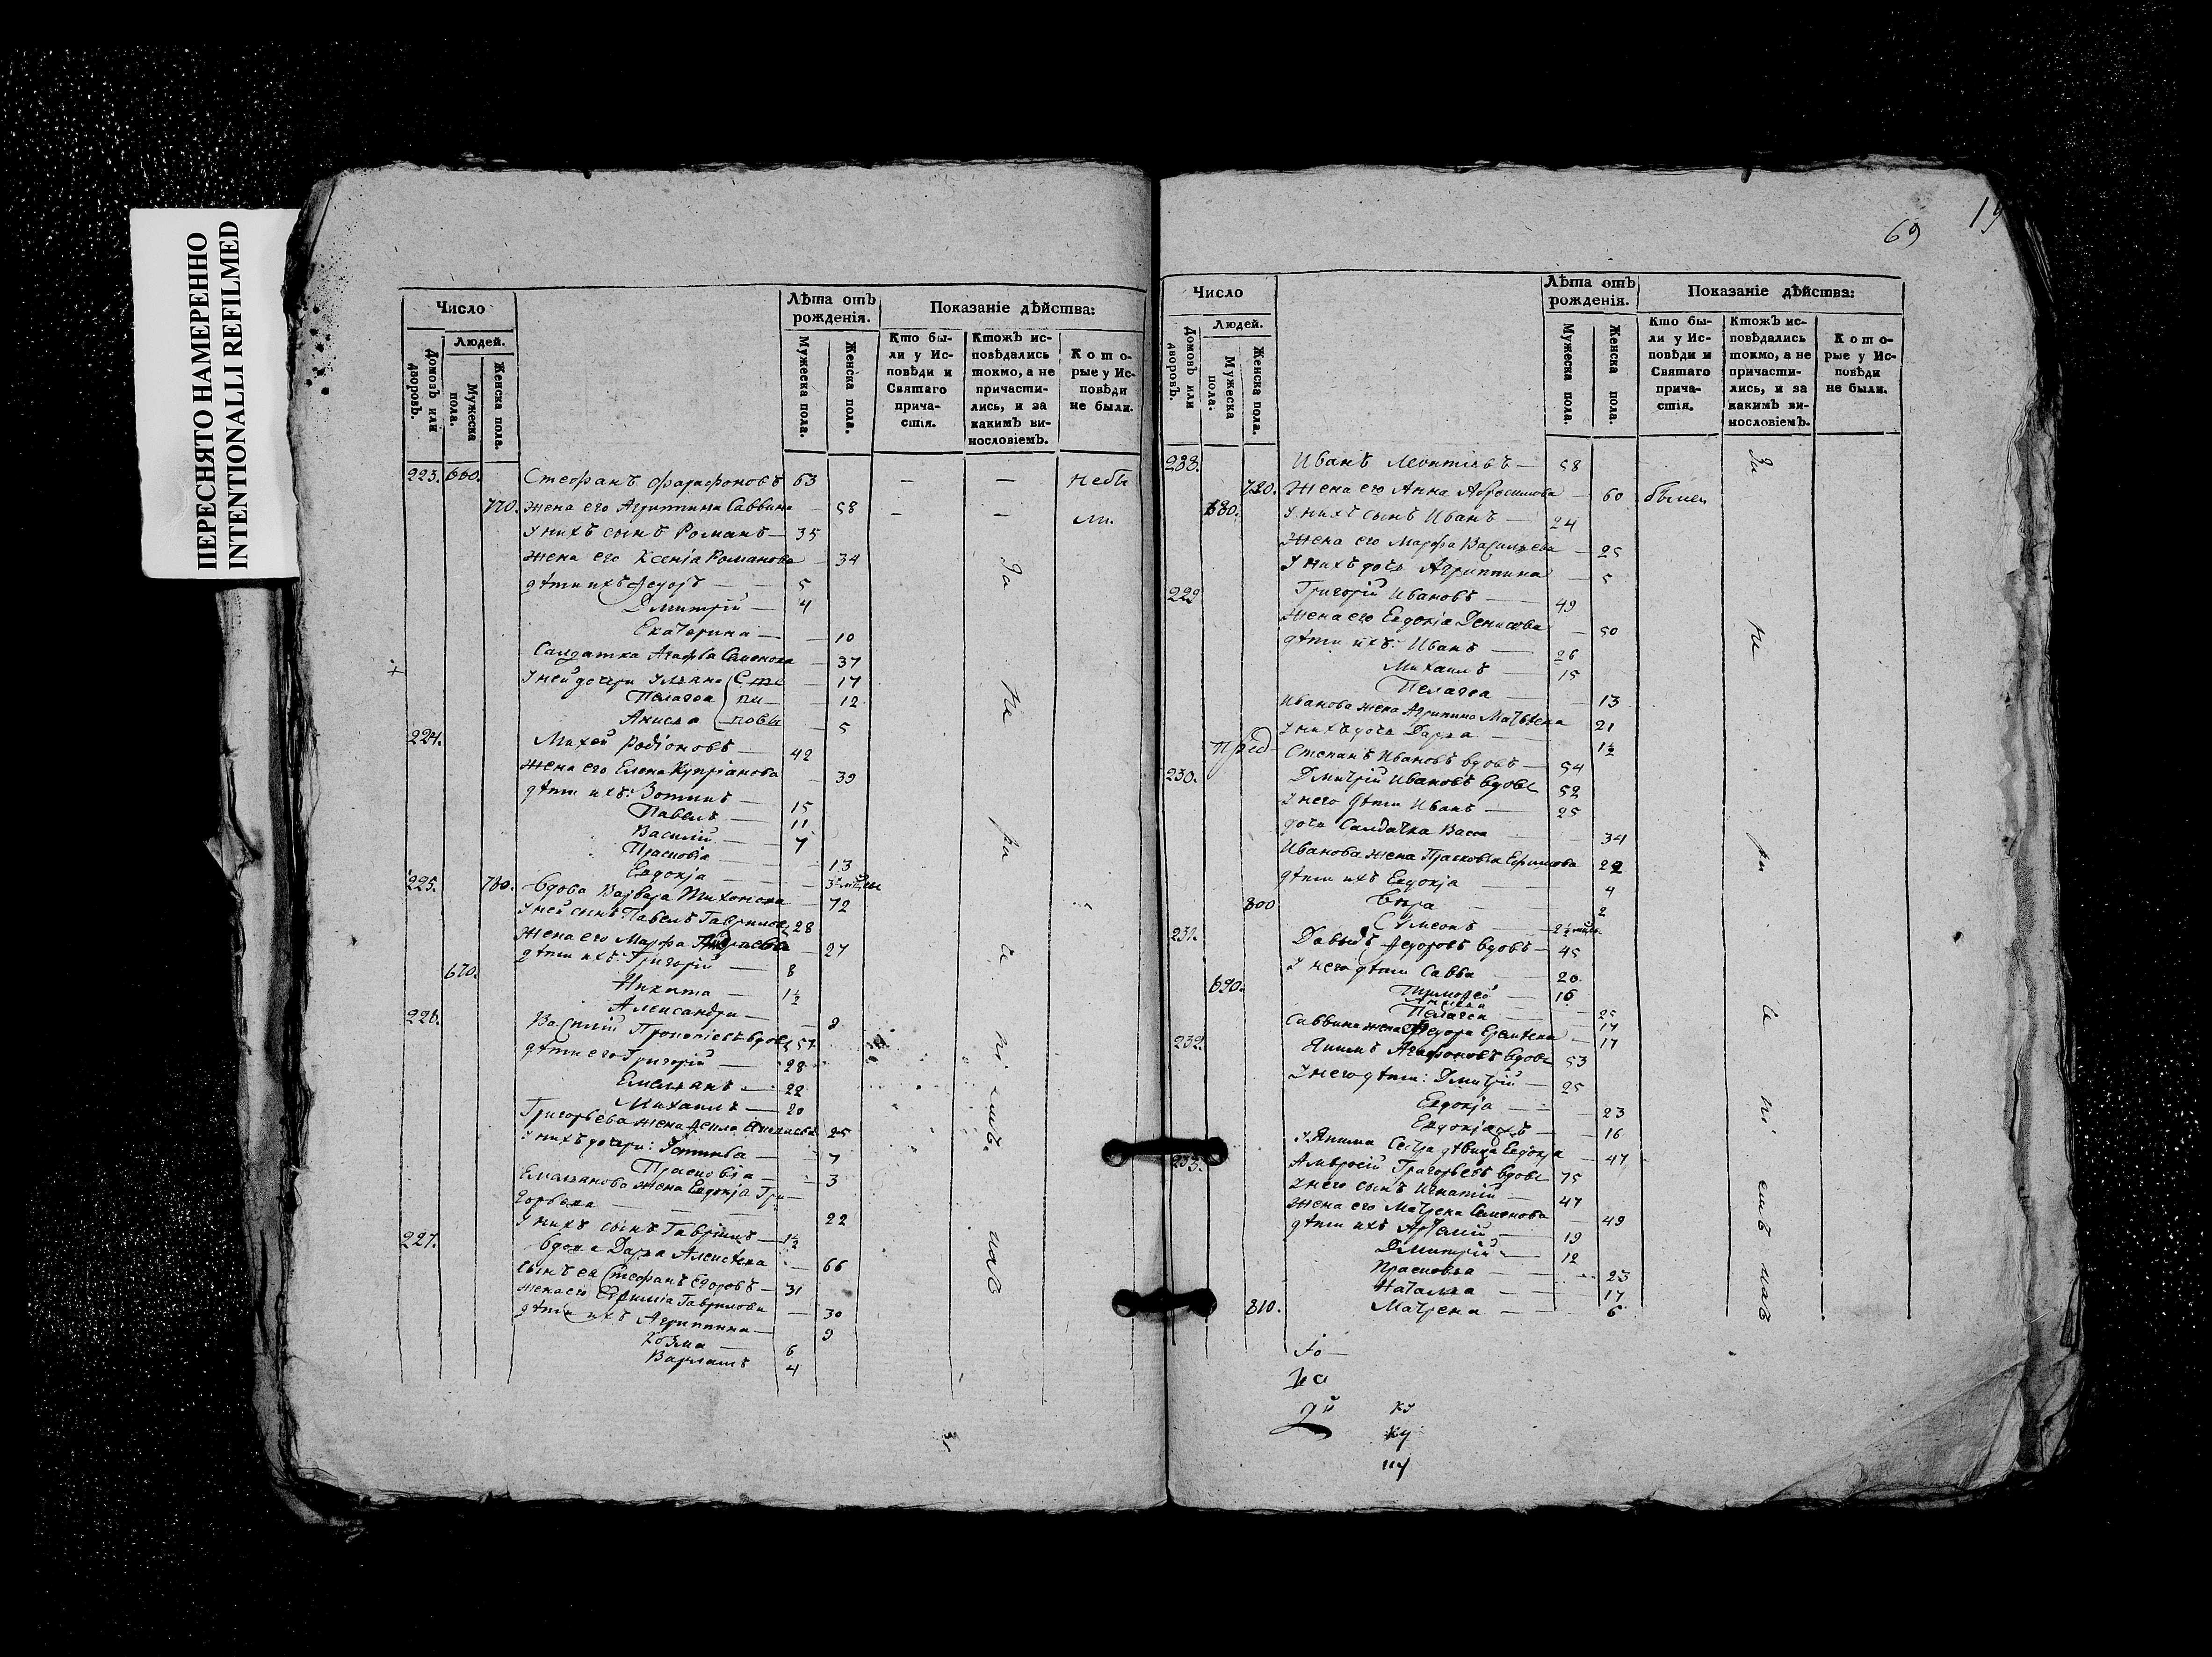 ПЕРЕСНЯТО НАМЕРЕННО
INTENTIONALLI REFILMED
Число
Лѣта отъ рожденія.
Показаніе дѣйства:
Людей.
Домовъ или дворовъ.
Мужеска пола.
Женска пола.
Мужеска пола.
Женска пола.
Кто были у Исповѣди и Святаго причастія.
Ктожъ исповѣдались токмо, а не причастились, и за какимъ винословіемъ.
Которые у Исповѣди не были.
223. 660. Стефанъ 63 — — небы
770. жена его Агриппина Саввина — 58 — — ли.
У нихъ сынъ Романъ — 35
жена его Ксенія Романова — 34
дѣти ихъ Федоръ — 5
Дмитрій — 4
Екатерина — — 10
Салдатка Агафья Семенова — 37
У ней дочери Ульяна Сте — 17
Пелагея па — 12
Анисья — повы — 5
224. Михей Родіоновъ — 42
жена его Елена Купріанова — 39
дѣти ихъ: Зотикъ — 15
Павелъ — 11
Василій — 7
Прасковія — 13
Евдокія —
225. 780. вдова Варвара Тихонова — 72
У ней сынъ Павелъ Гавриловъ 28
жена его Марфа — 27
дѣти ихъ: Григорій — 8
670. Никита — 1½
Александра — 8
226. Василій Прокопіевъ вдовъ 57
дѣти его Григорій — 28
Емельянъ — 22
Михаилъ — 20
Григорьева жена 25
У нихъ дочери: Устинья — 7
Прасковія — 3
Емельянова жена Евдокія Гри-
горьева — 22
У нихъ сынъ Гавріилъ — 1½
227. вдова Дарья Алексѣева — 66
сынъ ея Стефанъ Егоровъ — 31
жена его Евфимія Гаврилова — 30
дѣти ихъ Агриппина — 9
Козма — 6
Варлаамъ 4
За
не
ра
че
ніемъ
69 19
Число
Лѣта отъ рожденія.
Показаніе дѣйства:
Людей.
Домовъ или дворовъ.
Мужеска пола.
Женска пола.
Мужеска пола.
Женска пола.
Кто были у Исповѣди и Святаго причастія.
Ктожъ исповѣдались токмо, а не причастились, и за какимъ винословіемъ.
Которые у Исповѣди не были.
228. Иванъ Леонтіевъ — 58
Жена его Анна Абросимова — 60
680. У нихъ сынъ Иванъ — 24
Жена его Марфа Васильева — 25
У нихъ дочь Агриппина — 5
229 Григорій Ивановъ — 49
Жена его Евдокія Денисова — 50
дѣти ихъ: Иванъ — 26
Михаилъ — 15
Пелагея — 13
Иванова жена Агрипина Матвѣева 21
У нихъ дочь Дарья — 1½
Степанъ Ивановъ вдовъ — 54
230. Дмитрій Ивановъ вдовъ 52
У него дѣти Иванъ — 25
дочь Салдатка Васса — 34
Иванова жена Прасковья Ефимова 22
дѣти ихъ Евдокія — 4
800 Вѣра — 2
Сумеонъ —
231. Давыдъ Федоровъ вдовъ — 45
У него дѣти Савва — 20
690. Тимофей — 16
Анисья — 25
Пелагея — 17
Саввина жена Федора — 17
232. Якимъ Агафоновъ вдовъ 53
У него дѣти: Дмитрій — 25
Евдокія — 23
Евдокія — 16
У Якима сестра дѣвица Евдокія 47
233. Амвросій Григорьевъ вдовъ 75
У него сынъ Игнатій — 47
жена его Матрена Семенова — 49
дѣти ихъ Артемій — 19
Дмитрій — 12
Прасковья — 23
Наталья — 17
810. Матрена — 6
За
не
ра
че
ні
емъ